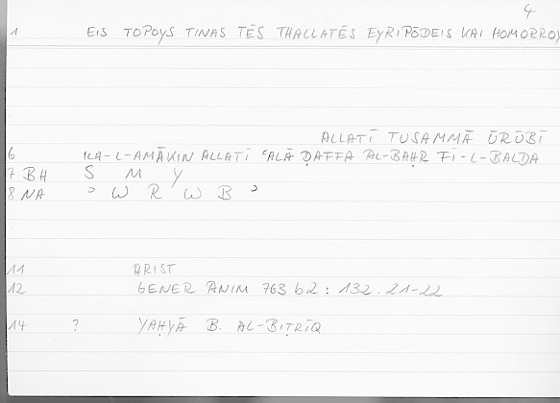 4
1 EIS TOPOYS TINAS TĒS THALLATĒS EYRIPŌDEIS KAI HOMORROY
ALLATĪ TUSAMMĀ ŪRŪBĪ
6 ILA-L-AMĀKIN ALLATĪ ʿALĀ ḌAFFA AL-BAḤR FĪ-L-BALDA
7 BH S M Y
8 NA ʾ W R W B ʾ
11 ARIST
12 GENER ANIM 763 b2 : 132.21-22
14 ? YAḤYĀ B. AL-BIṬRĪQ